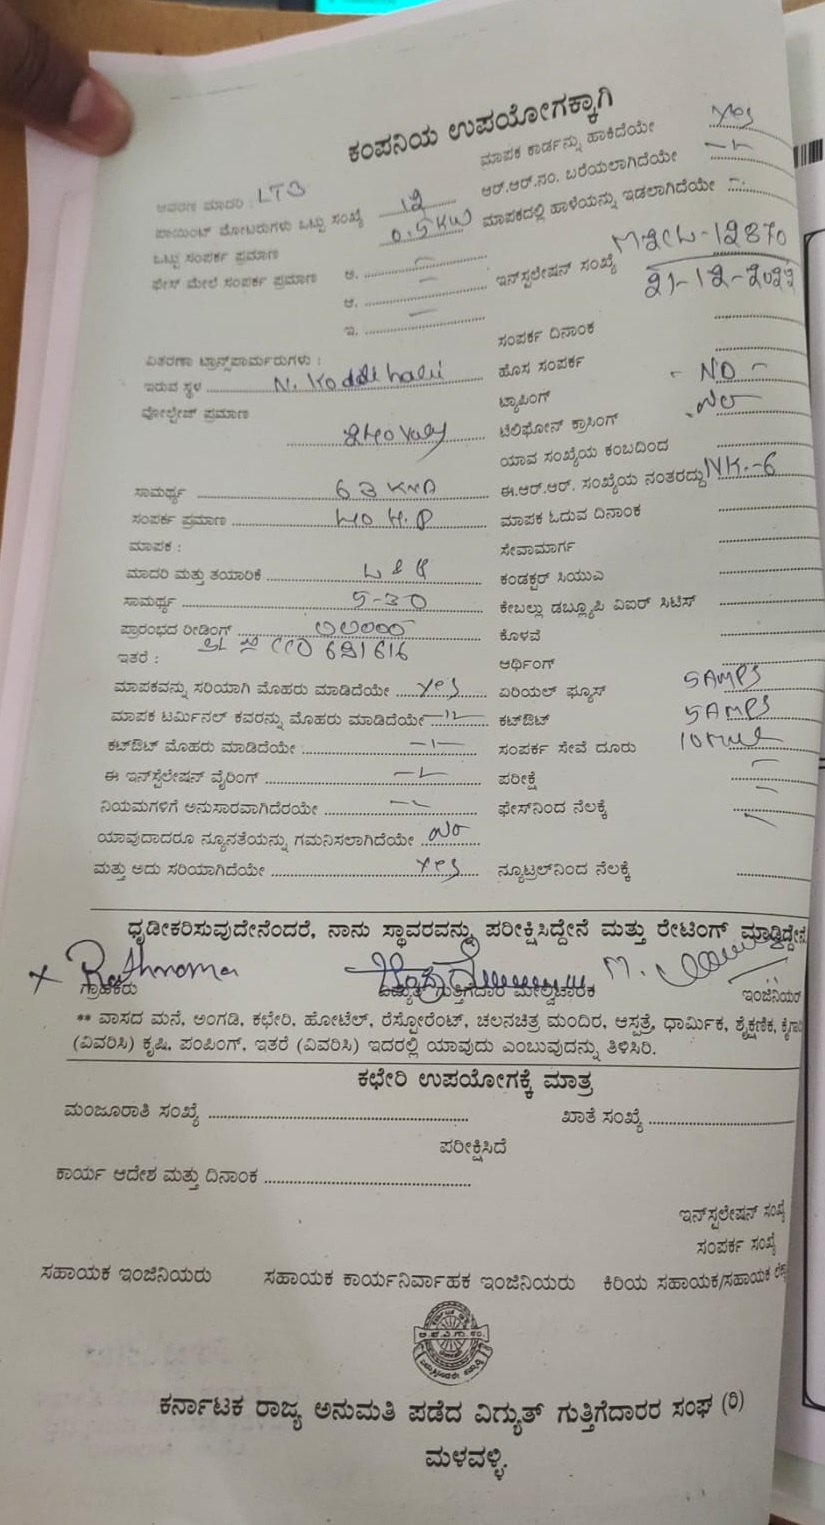 ಕಂಪನಿಯ ಉಪಯೋಗಕ್ಕಾಗಿ
ಮಾಪಕ ಕಾರ್ಡನ್ನು ಹಾಕಿದೆಯೇ Yes
ಆವರಣ ಮಾದರಿ : LT3
ಆರ್.ಆರ್.ನಂ. ಬರೆಯಲಾಗಿದೆಯೇ
ಪಾಯಿಂಟ್ ಮೋಟರುಗಳು ಒಟ್ಟು ಸಂಖ್ಯೆ 12
ಮಾಪಕದಲ್ಲಿ ಹಾಳೆಯನ್ನು ಇಡಲಾಗಿದೆಯೇ
ಒಟ್ಟು ಸಂಪರ್ಕ ಪ್ರಮಾಣ 0.5 KW
ಫೇಸ್ ಮೇಲೆ ಸಂಪರ್ಕ ಪ್ರಮಾಣ ಅ.
ಇನ್‌ಸ್ಟಲೇಷನ್ ಸಂಖ್ಯೆ 12870
ಆ.
21-12-2022
ಇ.
ಸಂಪರ್ಕ ದಿನಾಂಕ
ವಿತರಣಾ ಟ್ರಾನ್ಸ್‌ಫಾರ್ಮರುಗಳು :
ಹೊಸ ಸಂಪರ್ಕ
ಇರುವ ಸ್ಥಳ N. Koddihalli
ಟ್ಯಾಪಿಂಗ್ - NO -
ವೋಲ್ಟೇಜ್ ಪ್ರಮಾಣ
ಟೆಲಿಫೋನ್ ಕ್ರಾಸಿಂಗ್ No
ಯಾವ ಸಂಖ್ಯೆಯ ಕಂಬದಿಂದ
ಸಾಮರ್ಥ್ಯ 63 KVA
ಈ.ಆರ್.ಆರ್. ಸಂಖ್ಯೆಯ ನಂತರದ್ದು NK.-6
ಸಂಪರ್ಕ ಪ್ರಮಾಣ 40 H.P
ಮಾಪಕ ಓದುವ ದಿನಾಂಕ
ಮಾಪಕ :
ಸೇವಾಮಾರ್ಗ
ಮಾದರಿ ಮತ್ತು ತಯಾರಿಕೆ
ಕಂಡಕ್ಟರ್ ಸಿಯುಎ
ಸಾಮರ್ಥ್ಯ 5-30
ಕೇಬಲ್ಲು ಡಬ್ಲ್ಯೂಪಿ ಎಐಆರ್ ಸಿಟಿಸ್
ಪ್ರಾರಂಭದ ರೀಡಿಂಗ್ 00000
ಕೊಳವೆ
ಇತರೆ :
ಆರ್ಥಿಂಗ್
ಮಾಪಕವನ್ನು ಸರಿಯಾಗಿ ಮೊಹರು ಮಾಡಿದೆಯೇ Yes
ಏರಿಯಲ್ ಫ್ಯೂಸ್ 5AMPS
ಮಾಪಕ ಟರ್ಮಿನಲ್ ಕವರನ್ನು ಮೊಹರು ಮಾಡಿದೆಯೇ
ಕಟ್‌ಔಟ್ 5AMPS
ಕಟ್‌ಔಟ್ ಮೊಹರು ಮಾಡಿದೆಯೇ :
ಸಂಪರ್ಕ ಸೇವೆ ದೂರು
ಈ ಇನ್‌ಸ್ಟಲೇಷನ್ ವೈರಿಂಗ್
ಪರೀಕ್ಷೆ
ನಿಯಮಗಳಿಗೆ ಅನುಸಾರವಾಗಿದೆರಯೇ
ಫೇಸ್‌ನಿಂದ ನೆಲಕ್ಕೆ
ಯಾವುದಾದರೂ ನ್ಯೂನತೆಯನ್ನು ಗಮನಿಸಲಾಗಿದೆಯೇ No
ಮತ್ತು ಅದು ಸರಿಯಾಗಿದೆಯೇ Yes
ನ್ಯೂಟ್ರಲ್‌ನಿಂದ ನೆಲಕ್ಕೆ
ಧೃಡೀಕರಿಸುವುದೇನೆಂದರೆ, ನಾನು ಸ್ಥಾವರವನ್ನು ಪರೀಕ್ಷಿಸಿದ್ದೇನೆ ಮತ್ತು ರೇಟಿಂಗ್ ಮಾಡಿದ್ದೇನೆ
ಗ್ರಾಹಕರು ವಿದ್ಯುತ್ ಗುತ್ತಿಗೆದಾರ ಮೇಲ್ವಿಚಾರಕ ಇಂಜಿನಿಯರ್
** ವಾಸದ ಮನೆ, ಅಂಗಡಿ, ಕಛೇರಿ, ಹೋಟೆಲ್, ರೆಸ್ಟೋರೆಂಟ್, ಚಲನಚಿತ್ರ ಮಂದಿರ, ಆಸ್ಪತ್ರೆ, ಧಾರ್ಮಿಕ, ಶೈಕ್ಷಣಿಕ,
(ವಿವರಿಸಿ) ಕೃಷಿ, ಪಂಪಿಂಗ್, ಇತರೆ (ವಿವರಿಸಿ) ಇದರಲ್ಲಿ ಯಾವುದು ಎಂಬುವುದನ್ನು ತಿಳಿಸಿರಿ.
ಕಛೇರಿ ಉಪಯೋಗಕ್ಕೆ ಮಾತ್ರ
ಮಂಜೂರಾತಿ ಸಂಖ್ಯೆ ಖಾತೆ ಸಂಖ್ಯೆ
ಪರೀಕ್ಷಿಸಿದೆ
ಕಾರ್ಯ ಆದೇಶ ಮತ್ತು ದಿನಾಂಕ
ಇನ್‌ಸ್ಟಲೇಷನ್ ಸಂಖ್ಯೆ
ಸಂಪರ್ಕ ಸಂಖ್ಯೆ
ಸಹಾಯಕ ಇಂಜಿನಿಯರು ಸಹಾಯಕ ಕಾರ್ಯನಿರ್ವಾಹಕ ಇಂಜಿನಿಯರು ಕಿರಿಯ ಸಹಾಯಕ/ಸಹಾಯಕ
ಕರ್ನಾಟಕ ರಾಜ್ಯ ಅನುಮತಿ ಪಡೆದ ವಿದ್ಯುತ್ ಗುತ್ತಿಗೆದಾರರ ಸಂಘ (ರಿ)
ಮಳವಳ್ಳಿ.